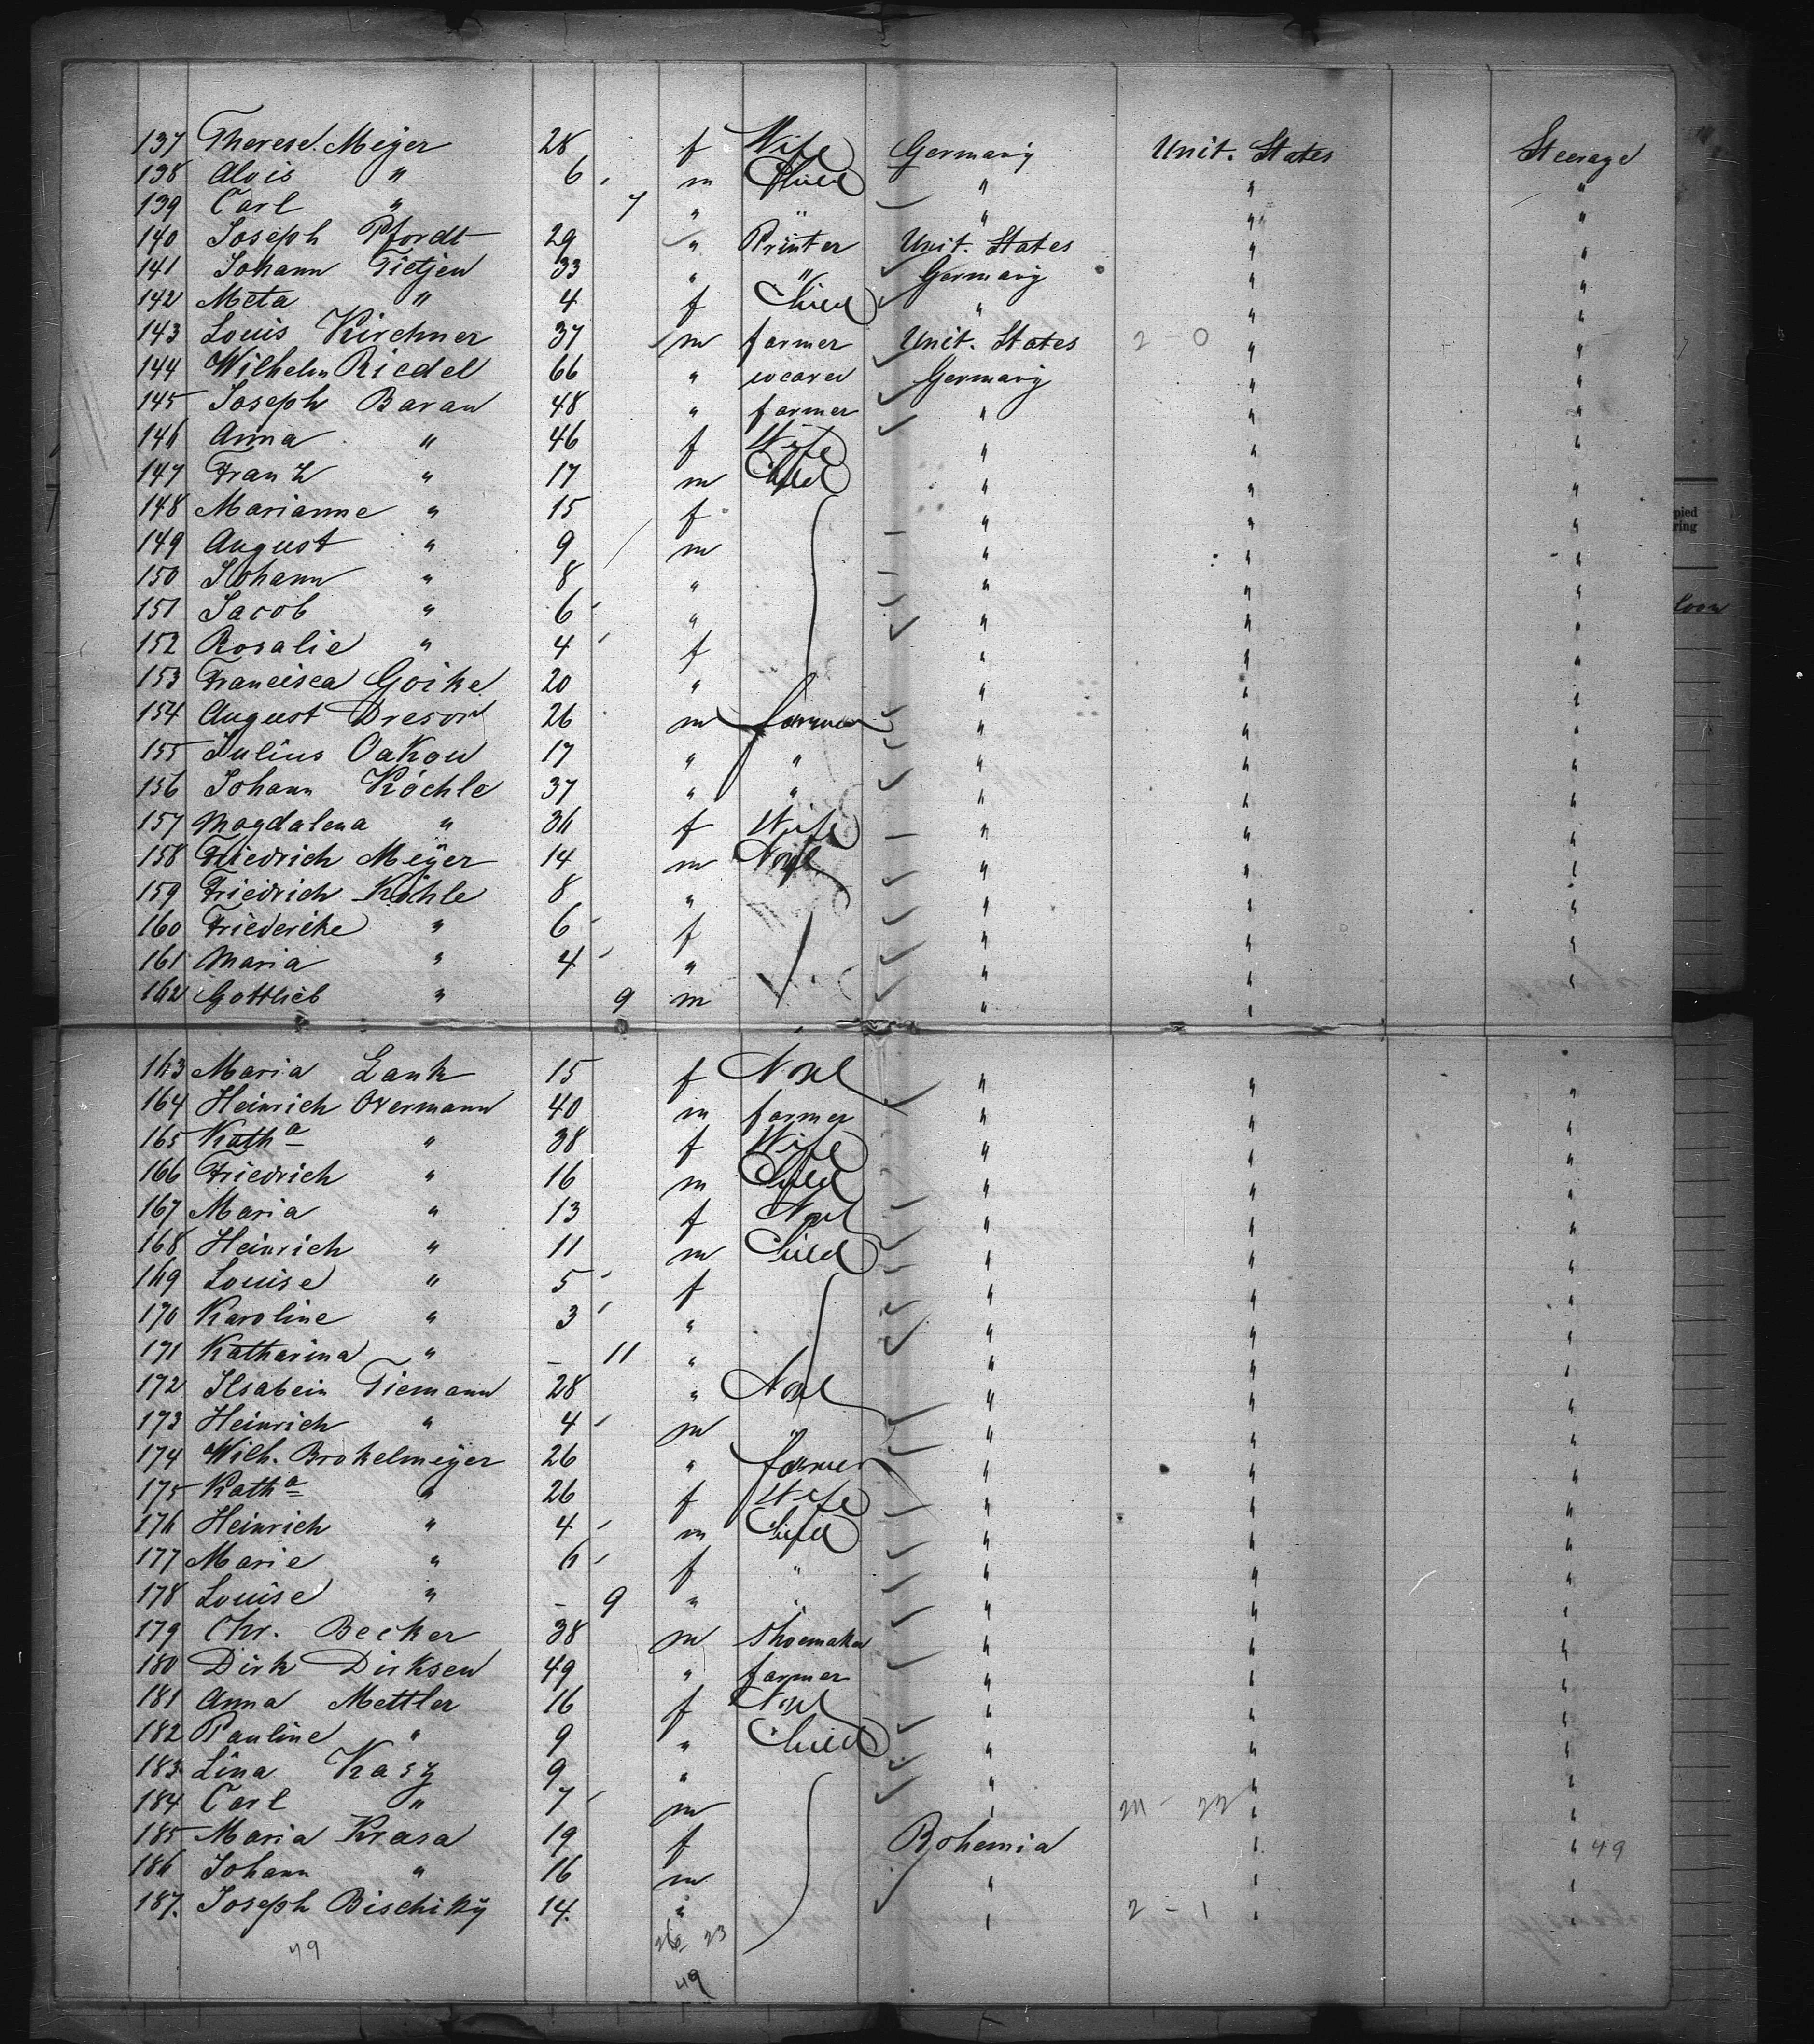 137 Therese Meyer 28 f Wife Germany Unit. States Steerage
138 Alois " 6 m Child " " "
139 Carl " 7 " " " " "
140 Joseph Pfordt 29 " Printer Unit. States " "
141 Johann Tietjen 33 " " Germany " "
142 Meta " 4 f Child " " "
143 Louis Kirchner 37 m farmer Unit. States 2 - 0 " "
144 Wilhelm Riedel 66 " weaver Germany " "
145 Joseph Baran 48 " farmer " " "
146 Anna " 46 f Wife " " "
147 Franz " 17 m Child " " "
148 Marianne " 15 f " " "
149 August " 9 m " " "
150 Johann " 8 " " " "
151 Jacob " 6 " " " "
152 Rosalie " 4 f " " "
153 Francisca Goike 20 " " " "
154 August Dreson 26 m farmer " " "
155 Julius Oakow 17 " " " " "
156 Johann Köchle 37 " " " " "
157 Magdalena " 36 f Wife " " "
158 Friedrich Meÿer 14 m None " " "
159 Friedrich Köhle 8 " " " "
160 Friederike " 6 f " " "
161 Maria " 4 " " " "
162 Gottlieb " 9 m " " "
163 Maria Lank 15 f None " " "
164 Heinrich Overmann 40 m farmer " " "
165 Katha " 38 f Wife " " "
166 Friedrich " 16 m Child " " "
167 Maria " 13 f None " " "
168 Heinrich " 11 m Child " " "
169 Louise " 5 f " " "
170 Karoline " 3 " " " "
171 Katharina " - 11 " " " "
172 Ilsabein Tiemann 28 " None " " "
173 Heinrich " 4 m " " " "
174 Wilh. Brokelmeyer 26 " farmer " " "
175 Katha " 26 f Wife " " "
176 Heinrich " 4 m Child " " "
177 Marie " 6 f " " " "
178 Louise " - 9 " " " " "
179 Chr. Becker 38 m Shoemaker " " "
180 Dirk Dirksen 49 " farmer " " "
181 Anna Mettler 16 f None " " "
182 Pauline " 9 " Child " " "
183 Lina Kasy 9 " " " "
184 Carl " 7 m " " "
185 Maria Krasa 19 f Bohemia " " 49
186 Johann " 16 m " " "
187. Joseph Bischiky 14. " " 2 - 1 " "
49 26 23
49